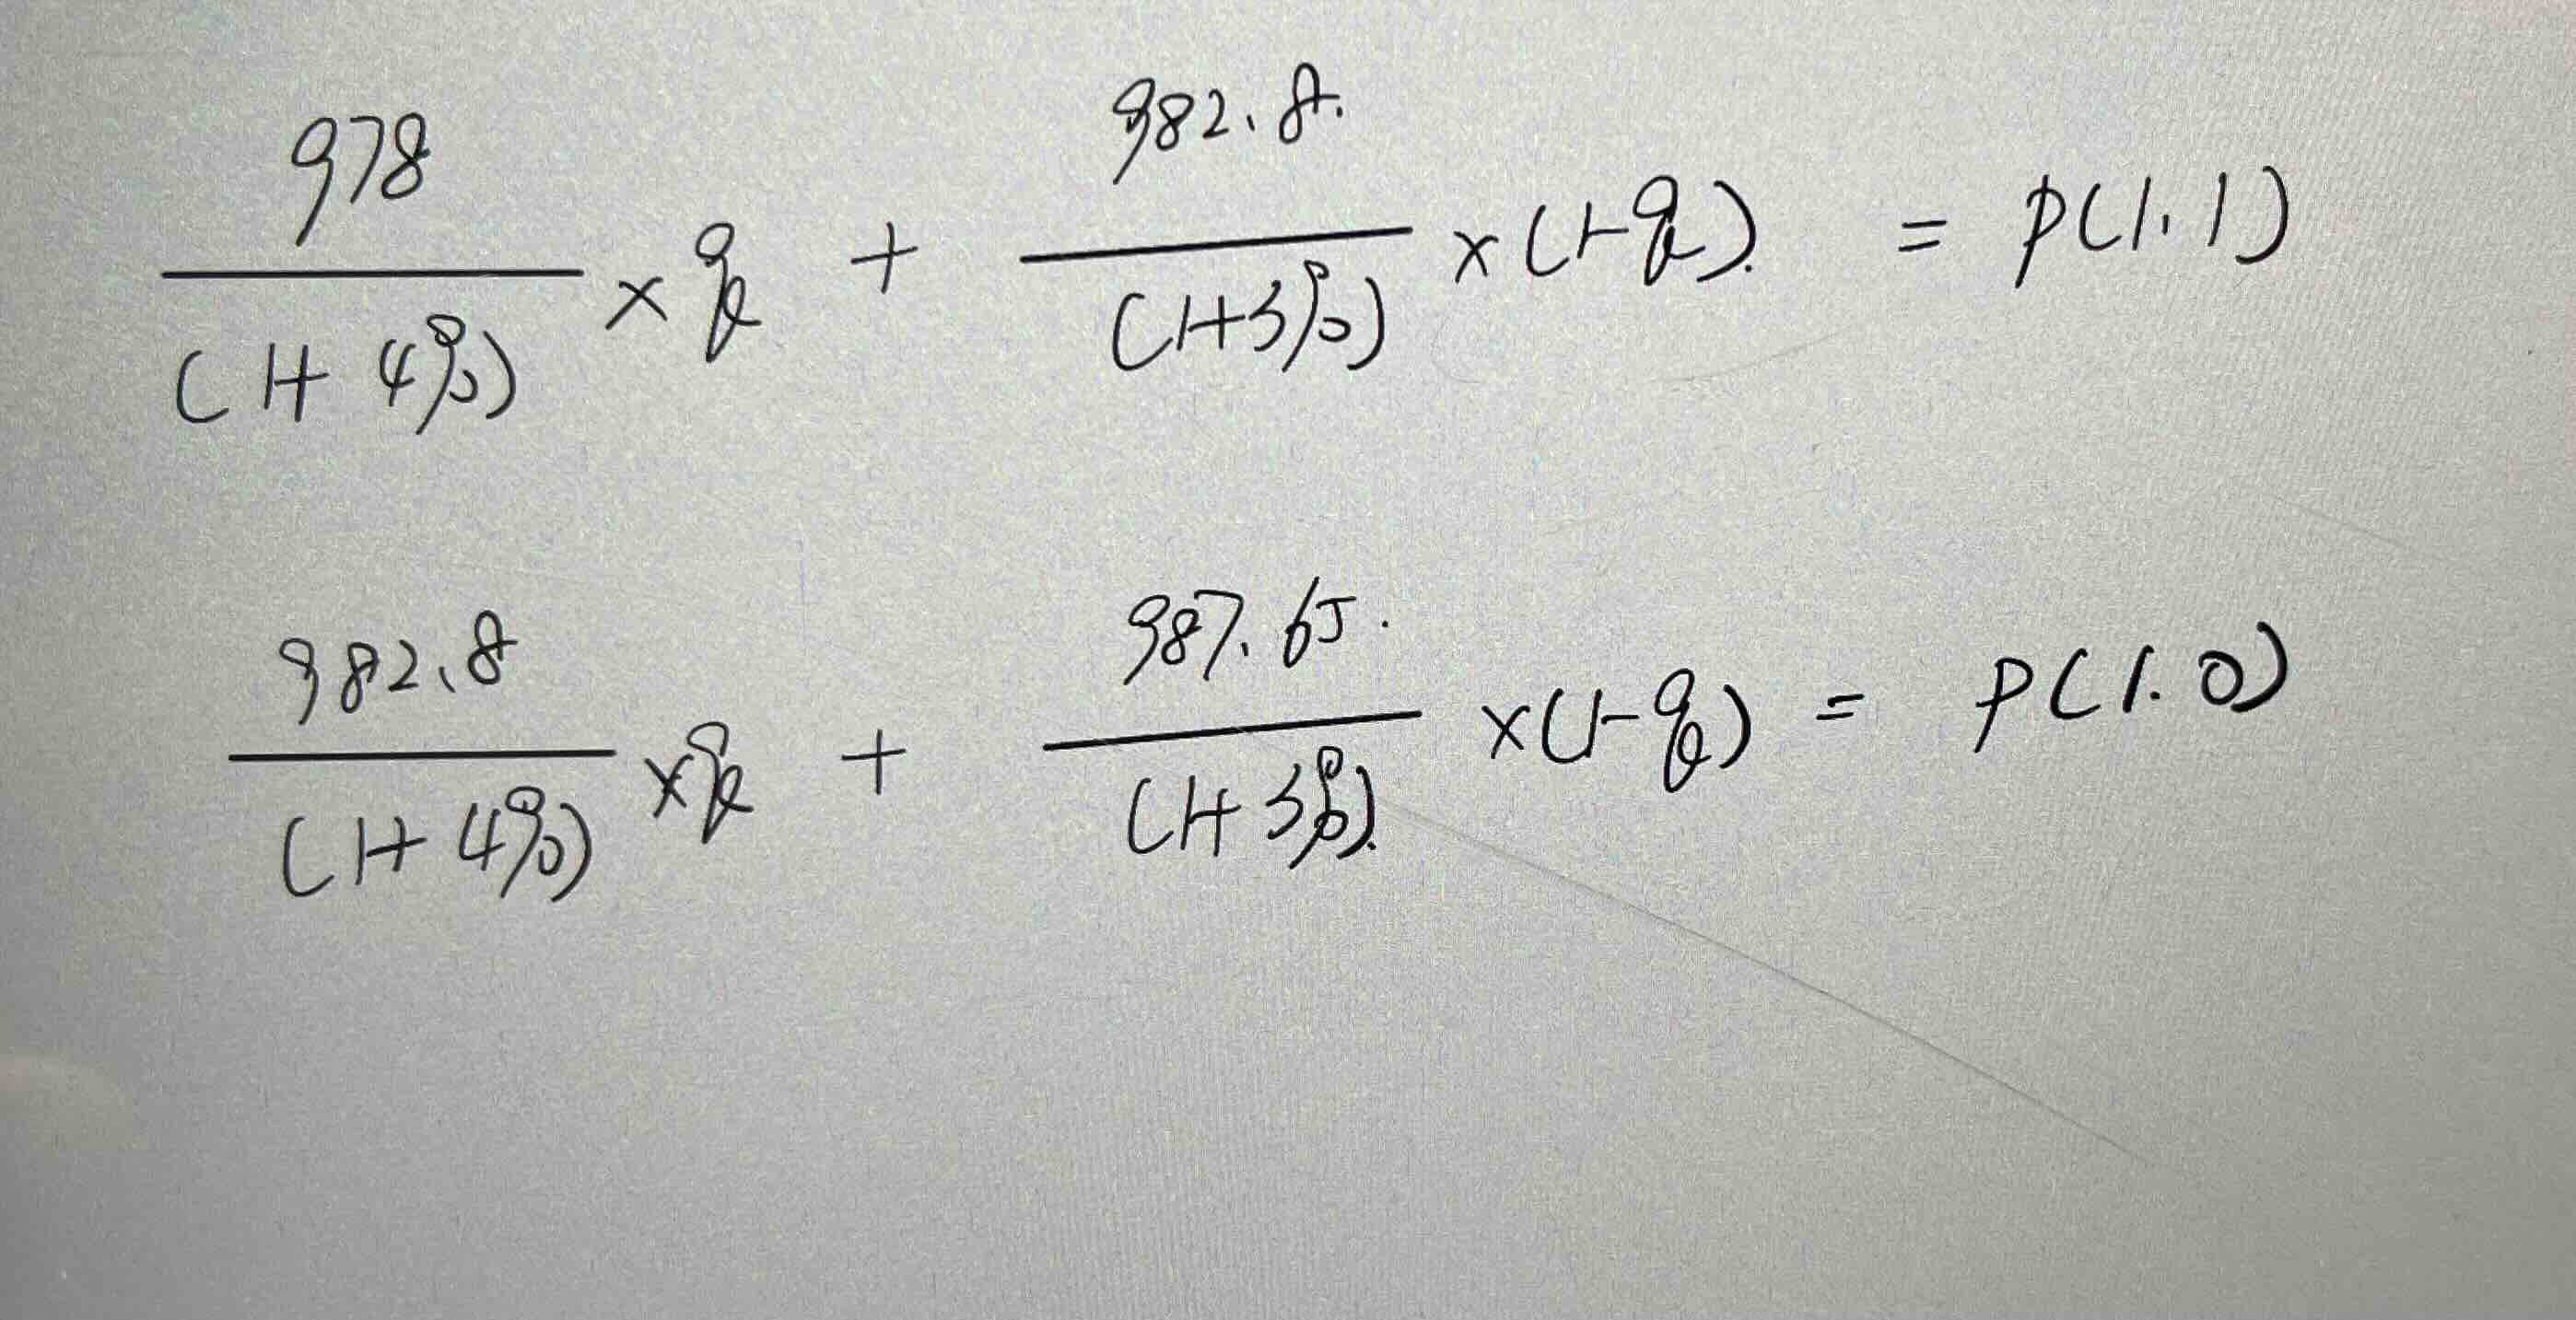 978/(1+4%) × q + 982.8/(1+3%) × (1-q) = p(1,1)
982.8/(1+4%) × q + 987.65/(1+3%) × (1-q) = p(1.0)